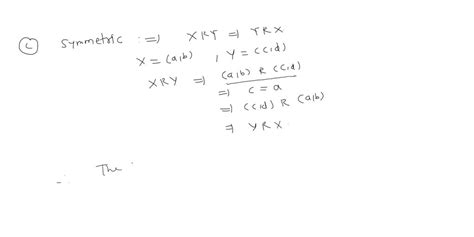 (c) symmetric :=) XRY =) YRX
X = (a,b) , Y = (c,d)
XRY =) (a,b) R (c,d)
=) c = a
=) (c,d) R (a,b)
=) YRX
∴ The